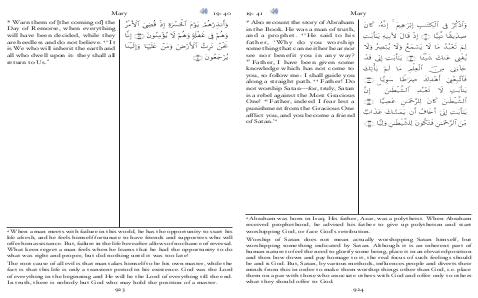 Mary 19: 40
³⁹ Warn them of [the coming of] the
Day of Remorse, when everything
will have been decided, while they
are heedless and do not believe. ⁴⁰ It
is We who will inherit the earth and
all who dwell upon it: they shall all
return to Us.ᵃ
وَأَنذِرْهُمْ يَوْمَ ٱلْحَسْرَةِ إِذْ قُضِىَ ٱلْأَمْرُ
وَهُمْ فِى غَفْلَةٍ وَهُمْ لَا يُؤْمِنُونَ ۝ إِنَّا
نَحْنُ نَرِثُ ٱلْأَرْضَ وَمَنْ عَلَيْهَا وَإِلَيْنَا
يُرْجَعُونَ ۝
ᵃ When a man meets with failure in this world, he has the opportunity to start his
life afresh, and he feels himself fortunate to have friends and supporters who will
offer him assistance. But, failure in the life hereafter allows of no chance of reversal.
What keen regret a man feels when he learns that he had the opportunity to do
what was right and proper, but did nothing until it was too late!
The root cause of all evil is that man takes himself to be his own master, while the
fact is that this life is only a transient period in his existence. God was the Lord
of everything in the beginning and He will be the Lord of everything till the end.
In truth, there is nobody but God who may hold the position of a master.
923
19: 41 Mary
⁴¹ Also recount the story of Abraham
in the Book. He was a man of truth,
and a prophet. ᵃ ⁴² He said to his
father, 'Why do you worship
something that can neither hear nor
see nor benefit you in any way?
⁴³ Father, I have been given some
knowledge which has not come to
you, so follow me: I shall guide you
along a straight path. ⁴⁴ Father! Do
not worship Satan—for, truly, Satan
is a rebel against the Most Gracious
One! ⁴⁵ Father, indeed I fear lest a
punishment from the Gracious One
afflict you, and you become a friend
of Satan.'ᵇ
وَٱذْكُرْ فِى ٱلْكِتَٰبِ إِبْرَٰهِيمَ ۚ إِنَّهُۥ كَانَ
صِدِّيقًا نَّبِيًّا ۝ إِذْ قَالَ لِأَبِيهِ يَٰٓأَبَتِ
لِمَ تَعْبُدُ مَا لَا يَسْمَعُ وَلَا يُبْصِرُ وَلَا
يُغْنِى عَنكَ شَيْـًٔا ۝ يَٰٓأَبَتِ إِنِّى قَدْ
جَآءَنِى مِنَ ٱلْعِلْمِ مَا لَمْ يَأْتِكَ
فَٱتَّبِعْنِىٓ أَهْدِكَ صِرَٰطًا سَوِيًّا ۝
يَٰٓأَبَتِ لَا تَعْبُدِ ٱلشَّيْطَٰنَ ۖ إِنَّ
ٱلشَّيْطَٰنَ كَانَ لِلرَّحْمَٰنِ عَصِيًّا ۝
يَٰٓأَبَتِ إِنِّىٓ أَخَافُ أَن يَمَسَّكَ عَذَابٌ
مِّنَ ٱلرَّحْمَٰنِ فَتَكُونَ لِلشَّيْطَٰنِ وَلِيًّا ۝
ᵃ Abraham was born in Iraq. His father, Azar, was a polytheist. When Abraham
received prophethood, he advised his father to give up polytheism and start
worshipping God, or face God's retribution.
Worship of Satan does not mean actually worshipping Satan himself, but
worshipping something indicated by Satan. Although it is an inherent part of
human nature to feel the need to glorify some being, place it in an elevated position
and then bow down and pay homage to it, the real focus of such feelings should
be and is God. But, Satan, by various methods, influences people and diverts their
minds from this in order to make them worship things other than God, i.e. place
them on a par with those who associate others with God and offer only to others
what they should offer to God.
924